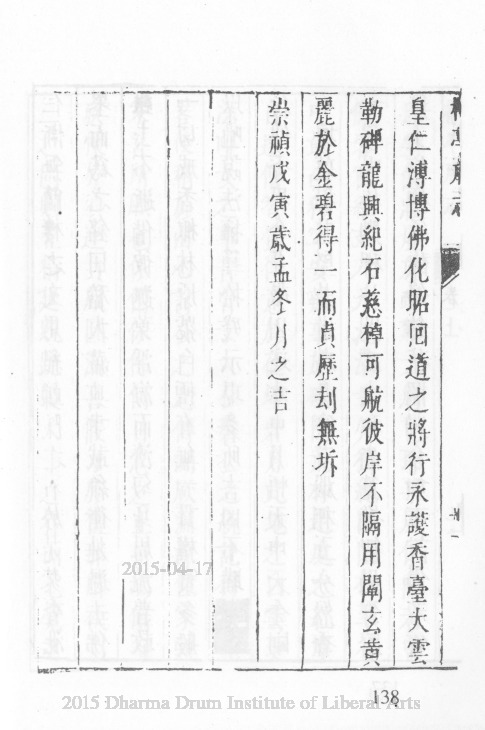 皇仁溥博佛化昭回道之將行永護香臺大雲
勒碑龍興紀石慈棹可航彼岸不隔用闡玄黃
麗於金碧得一而貞歷刦無坼
崇禎戊寅歲孟冬月之吉
2015-04-17
138
2015 Dharma Drum Institute of Liberal Arts